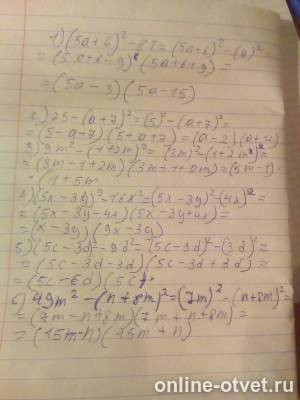 1) (5a+6)² - 81 = (5a+6)² - (9)² =
= (5a+6-9)(5a+6+9) =
= (5a-3)(5a-15)
2) 25-(a+7)² = (5)² - (a+7)² =
= (5-a+7)(5+a+7) = (a-2)(a+12)
3) 9m² - (1+2m)² = (3m)² - (1+2m)² =
= (3m-1+2m)(3m+1+2m) = (5m-1)·
(1+5m
4) (5x-3y)² - 16x² = (5x-3y)² - (4x)² =
= (5x-3y-4x)(5x-3y+4x) =
= (x-3y)(9x-3y)
5) (5c-3d)² - 9d² = (5c-3d)² - (3d)² =
= (5c-3d-3d)(5c-3d+3d) =
= (5c-6d)(5c)
6) 49m² - (n+8m)² = (7m)² - (n+8m)² =
= (7m-n+8m)(7m+n+8m) =
= (15m-n)(15m+n)
online-otvet.ru